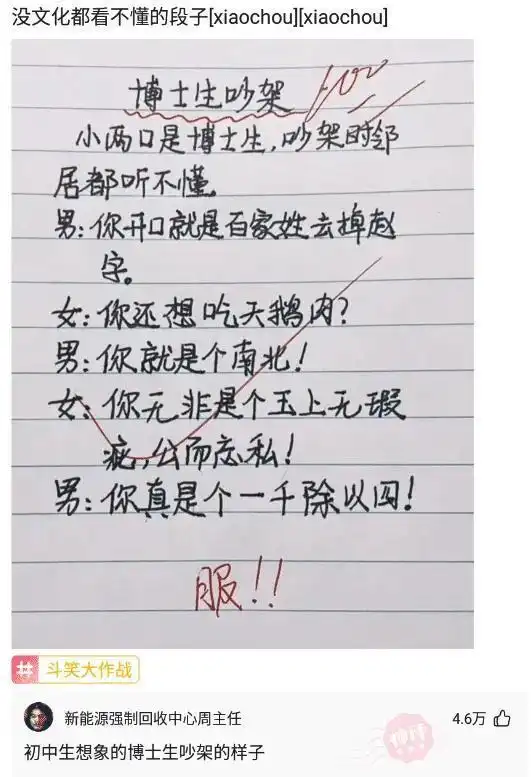 没文化都看不懂的段子[xiaochou][xiaochou]
博士生吵架 100
小两口是博士生,吵架时邻
居都听不懂。
男:你开口就是百家姓去掉赵
字。
女:你还想吃天鹅肉?
男:你就是个南北!
女:你无非是个玉上无瑕
疵,公而忘私!
男:你真是个一千除以四!
服!!
斗笑大作战
新能源强制回收中心周主任
4.6万
初中生想象的博士生吵架的样子